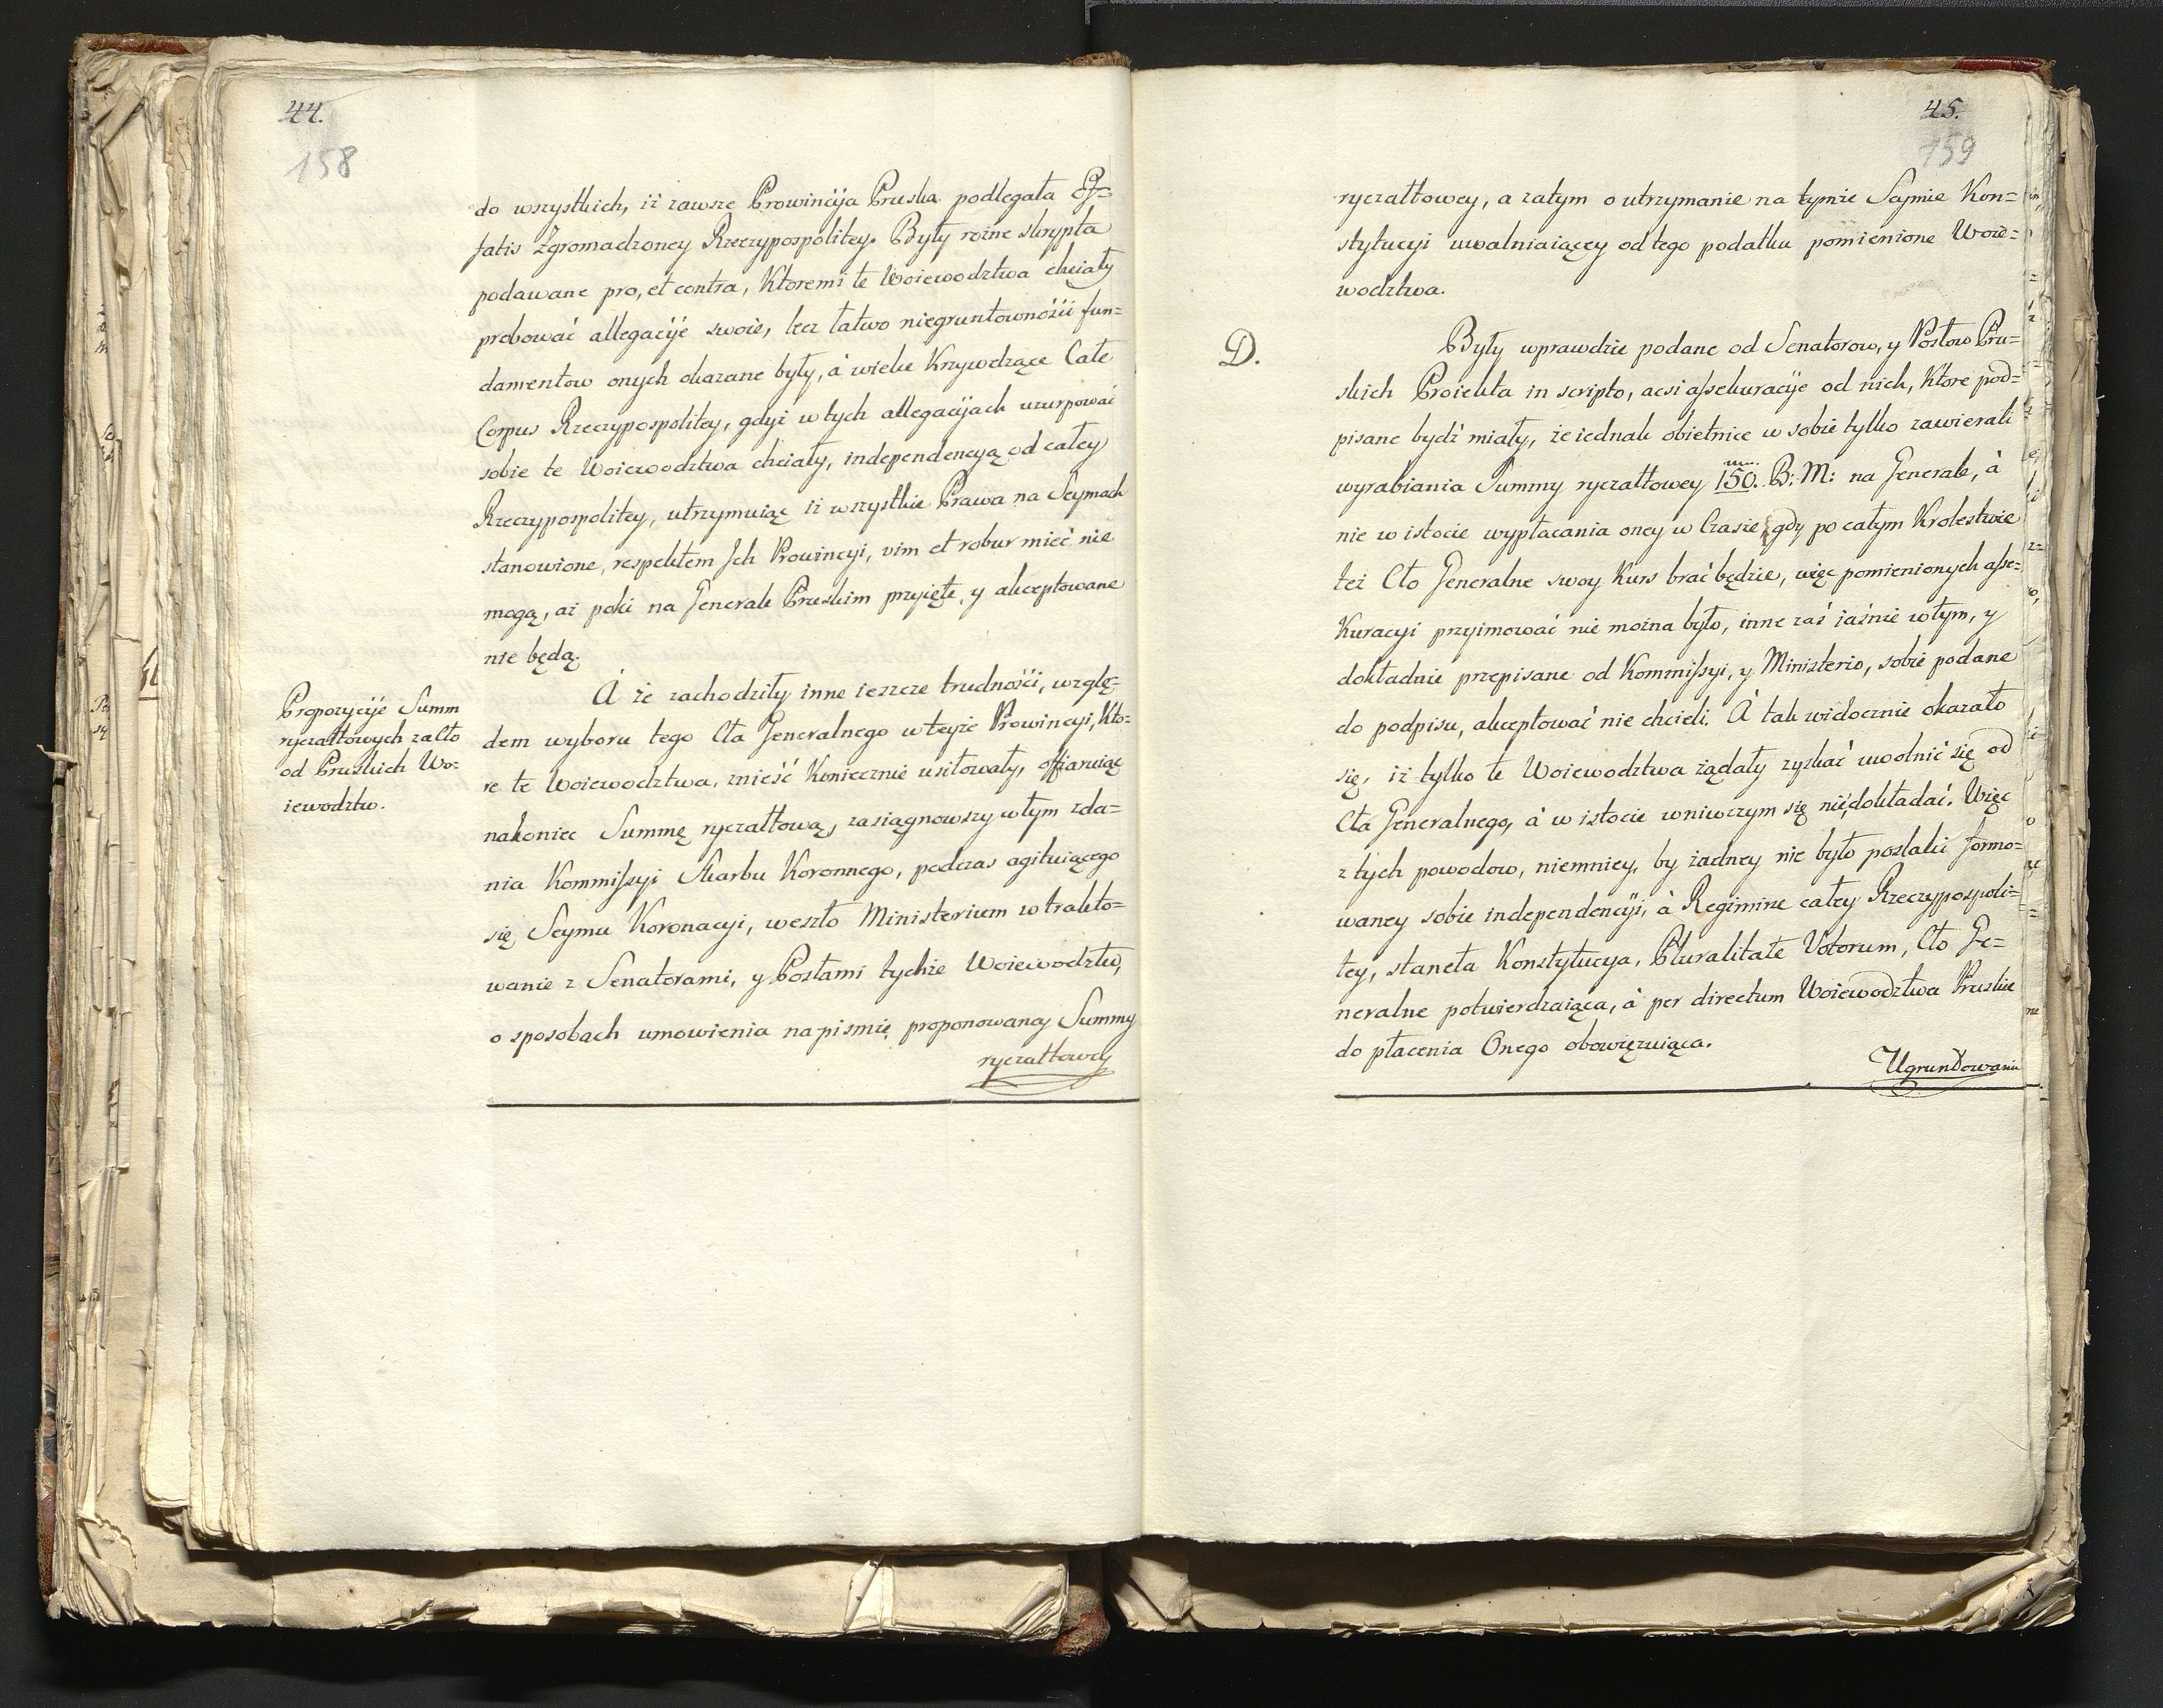 44.
158
do wszystkich, iż zawsze Prowincyja Pruska podlegała
fatis Zgromadzoney Rzeczypospolitey. Były rożne skrypta
podawane pro, et contra, Ktoremi te Woiewodztwa chciały
probować allegacyje swoie, lecz łatwo niegruntownośći fun=
damentow onych okazane były, à wielce Krzywdzące Całe
Corpus Rzeczypospolitey, gdyż w tych allegacyjach uzurpować
sobie te Woiewodztwa chciały, independencyą od całey
Rzeczypospolitey, utrzymuiąc iż wszystkie Prawa na Seymach
stanowione, respektem Jch Prowincyi, vim et robur mieć nie
mogą, aż poki na Generale Pruskim przyięte, y akceptowane
nie będą.
Propozycyje Summ
ryczałtowych za Cło
od Pruskich Wo=
iewodztw.
À że zachodziły inne ieszcze trudnośći, wzglę=
dem wyboru tego Cła Generalnego w teyże Prowincyi, Kto=
re te Woiewodztwa, znieść Koniecznie usiłowały, offiaruiąc
nakoniec Summę ryczałtową, zasiągnowszy w tym zda=
nia Kommissyi Skarbu Koronnego, podczas agituiącego
się Seymu Koronacyi, weszło Ministerium w trakto=
wanie z Senatorami, y Posłami tychże Woiewodztw,
o sposobach umowienia na pismie proponowaney Summy
ryczałtowey
45.
159
ryczałtowey, a zatym o utrzymanie na tymże Seymie Kon=
stytucyi uwalniaiącey od tego podatku pomienione Woie=
wodztwa.
D.
Były wprawdzie podane od Senatorow, y Posłow Pru=
skich Proiekta in scripto, acsi assekuracyje od nich, Ktore pod=
pisane bydź miały, że iednak obietnice w sobie tylko zawierali
wyrabiania Summy ryczałtowey 150. B: M: na Generale, à
nie w istocie wypłacania oney w Czasie, gdy po całym Krolestwie
też Cło Generalne swoy Kurs brać będzie, więc pomienionych asse=
Kuracyi przyimować nie można było, inne zaś iaśnie w tym, y
dokładnie przepisane od Kommissyi, y Ministerio, sobie podane
do podpisu, akceptować nie chcieli. À tak widocznie okazało
się, iż tylko te Woiewodztwa żądały zyskać uwolnić się od
Cła Generalnego, à w istocie wniwczym się nie dokładać. Więc
z tych powodow, niemniey, by żadney nie było poszlaki formo=
waney sobie independencyi, à Regimine całey Rzeczypospoli=
tey, staneła Konstytucya, Pluralitate Votorum, Cło Ge=
neralne potwierdzaiąca, à per directum Woiewodztwa Pruskie
do płacenia Onego obowięzuiąca.
Ugruntowanie